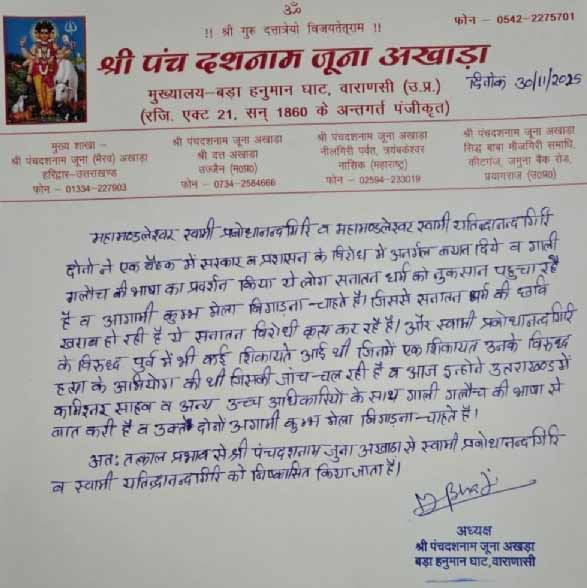 ॐ
!! श्री गुरु दत्तात्रेयो विजयतेत्राम !!
फोन – 0542-2275701
श्री पंच दशनाम जूना अखाड़ा
मुख्यालय–बड़ा हनुमान घाट, वाराणसी (उ.प्र.)
दिनांक 30/11/2025
(रजि. एक्ट 21, सन् 1860 के अन्तर्गत पंजीकृत)
मुख्य शाखा –
श्री पंचदशनाम जूना (भैरव) अखाड़ा
हरिद्वार–उत्तराखण्ड
फोन – 01334-227903
श्री पंचदशनाम जूना अखाडा
श्री दत्त अखाडा
उज्जैन (म0प्र0)
फोन – 0734-2584666
श्री पंचदशनाम जूना अखाडा
नीलगिरी पर्वत, त्रयंबकेश्वर
नासिक (महाराष्ट्र)
फोन – 02594-233019
श्री पंचदशनाम जूना अखाडा
सिद्ध बाबा मौजगिरी समाधि,
कीटगंज, जमुना बैंक रोड,
प्रयागराज (उ0प्र0)
महामण्डलेश्वर स्वामी प्रबोधानन्द गिरि व महामण्डलेश्वर स्वामी यतिन्द्रानन्द गिरि
दोनो ने एक बैठक में सरकार व प्रशासन के विरोध में अनर्गल बयान दिये व गाली
गलौच की भाषा का प्रदर्शन किया ये लोग सनातन धर्म को नुकसान पहुचा रहे
है व आगामी कुम्भ मेला बिगाड़ना चाहते है। जिससे सनातन धर्म की छवि
खराब हो रही है ये सनातन विरोधी कृत्य कर रहे है। और स्वामी प्रबोधानन्द गिरि
के विरुद्ध पूर्व में भी कई शिकायते आई थी जिनमें एक शिकायत उनके विरुद्ध
हत्या के अभियोग की थी जिसकी जांच चल रही है व आज इन्होने उत्तराखण्ड में
कमिश्नर साहब व अन्य उच्च अधिकारियो के साथ गाली गलौच की भाषा से
बात करी है व उक्त दोनो आगामी कुम्भ मेला बिगाड़ना चाहते है।
अतः तत्काल प्रभाव से श्री पंचदशनाम जुना अखाडा से स्वामी प्रबोधानन्द गिरि
व स्वामी यतिन्द्रानन्द गिरि को निष्कासित किया जाता है।
अध्यक्ष
श्री पंचदशनाम जूना अखड़ा
बड़ा हनुमान घाट, वाराणासी